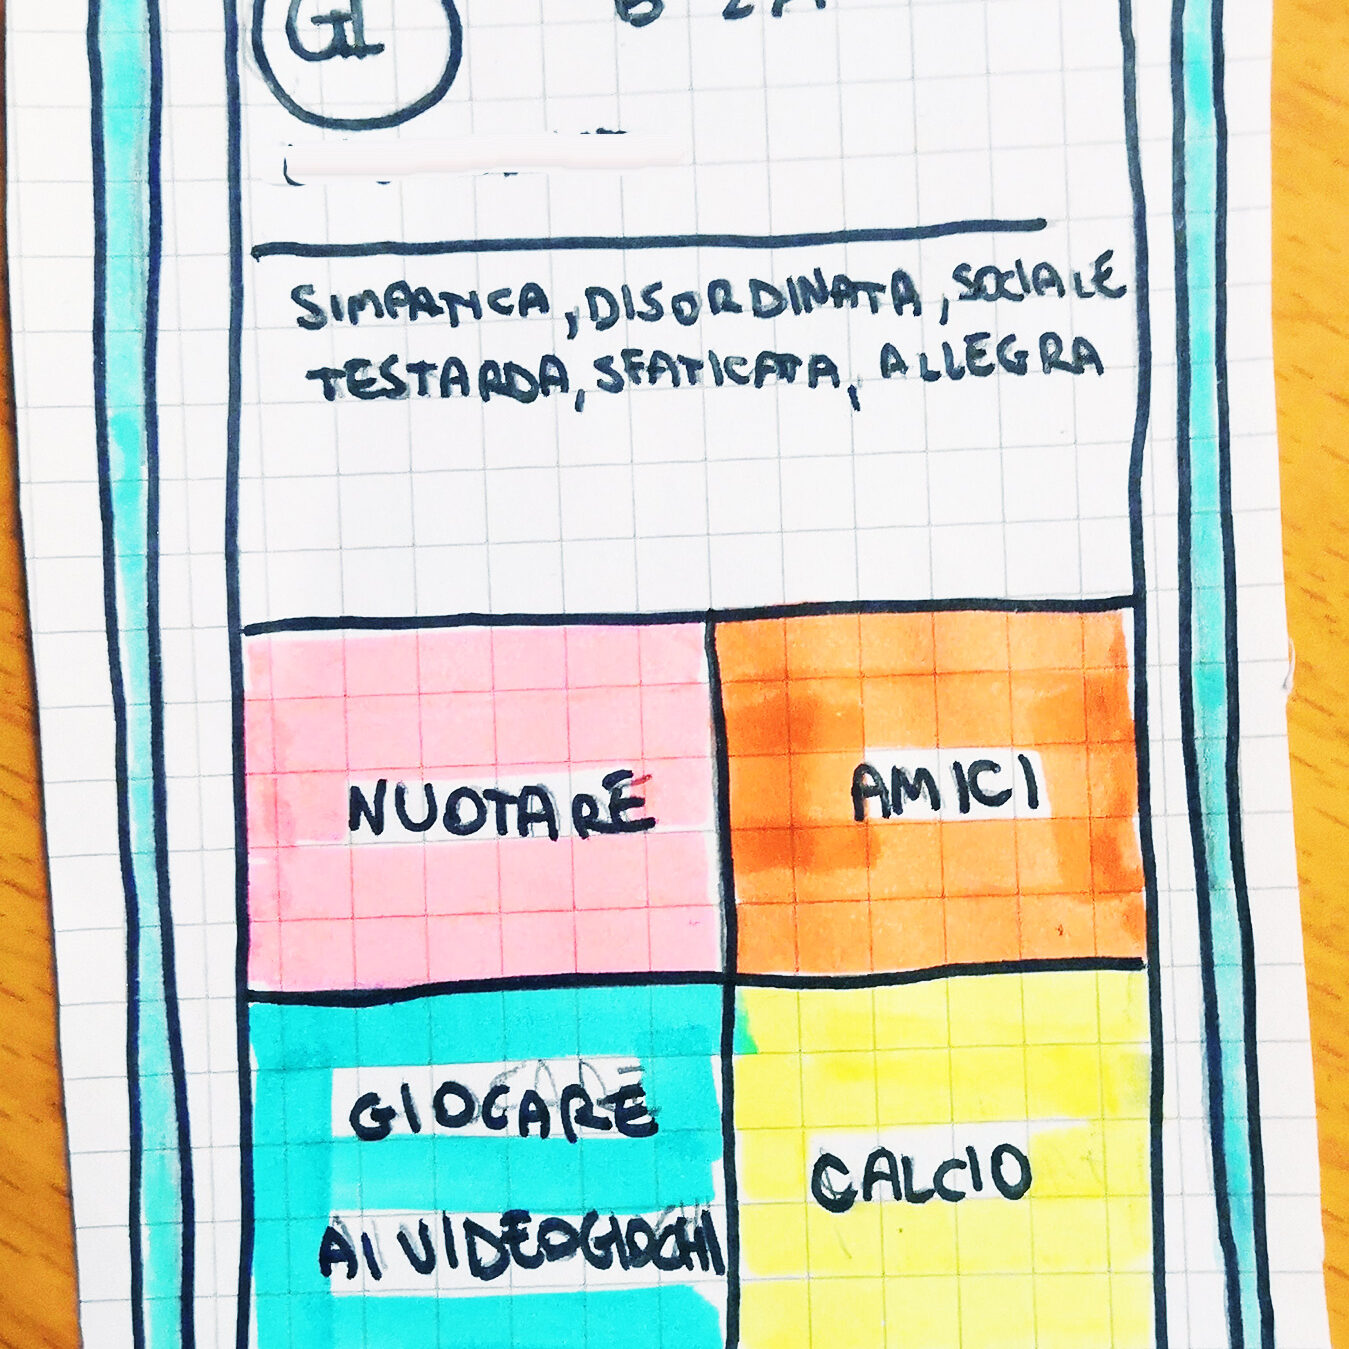 GI
SIMPATICA, DISORDINATA, SOCIALE
TESTARDA, SFATICATA, ALLEGRA
NUOTARE
AMICI
GIOCARE
AI VIDEOGIOCHI
CALCIO